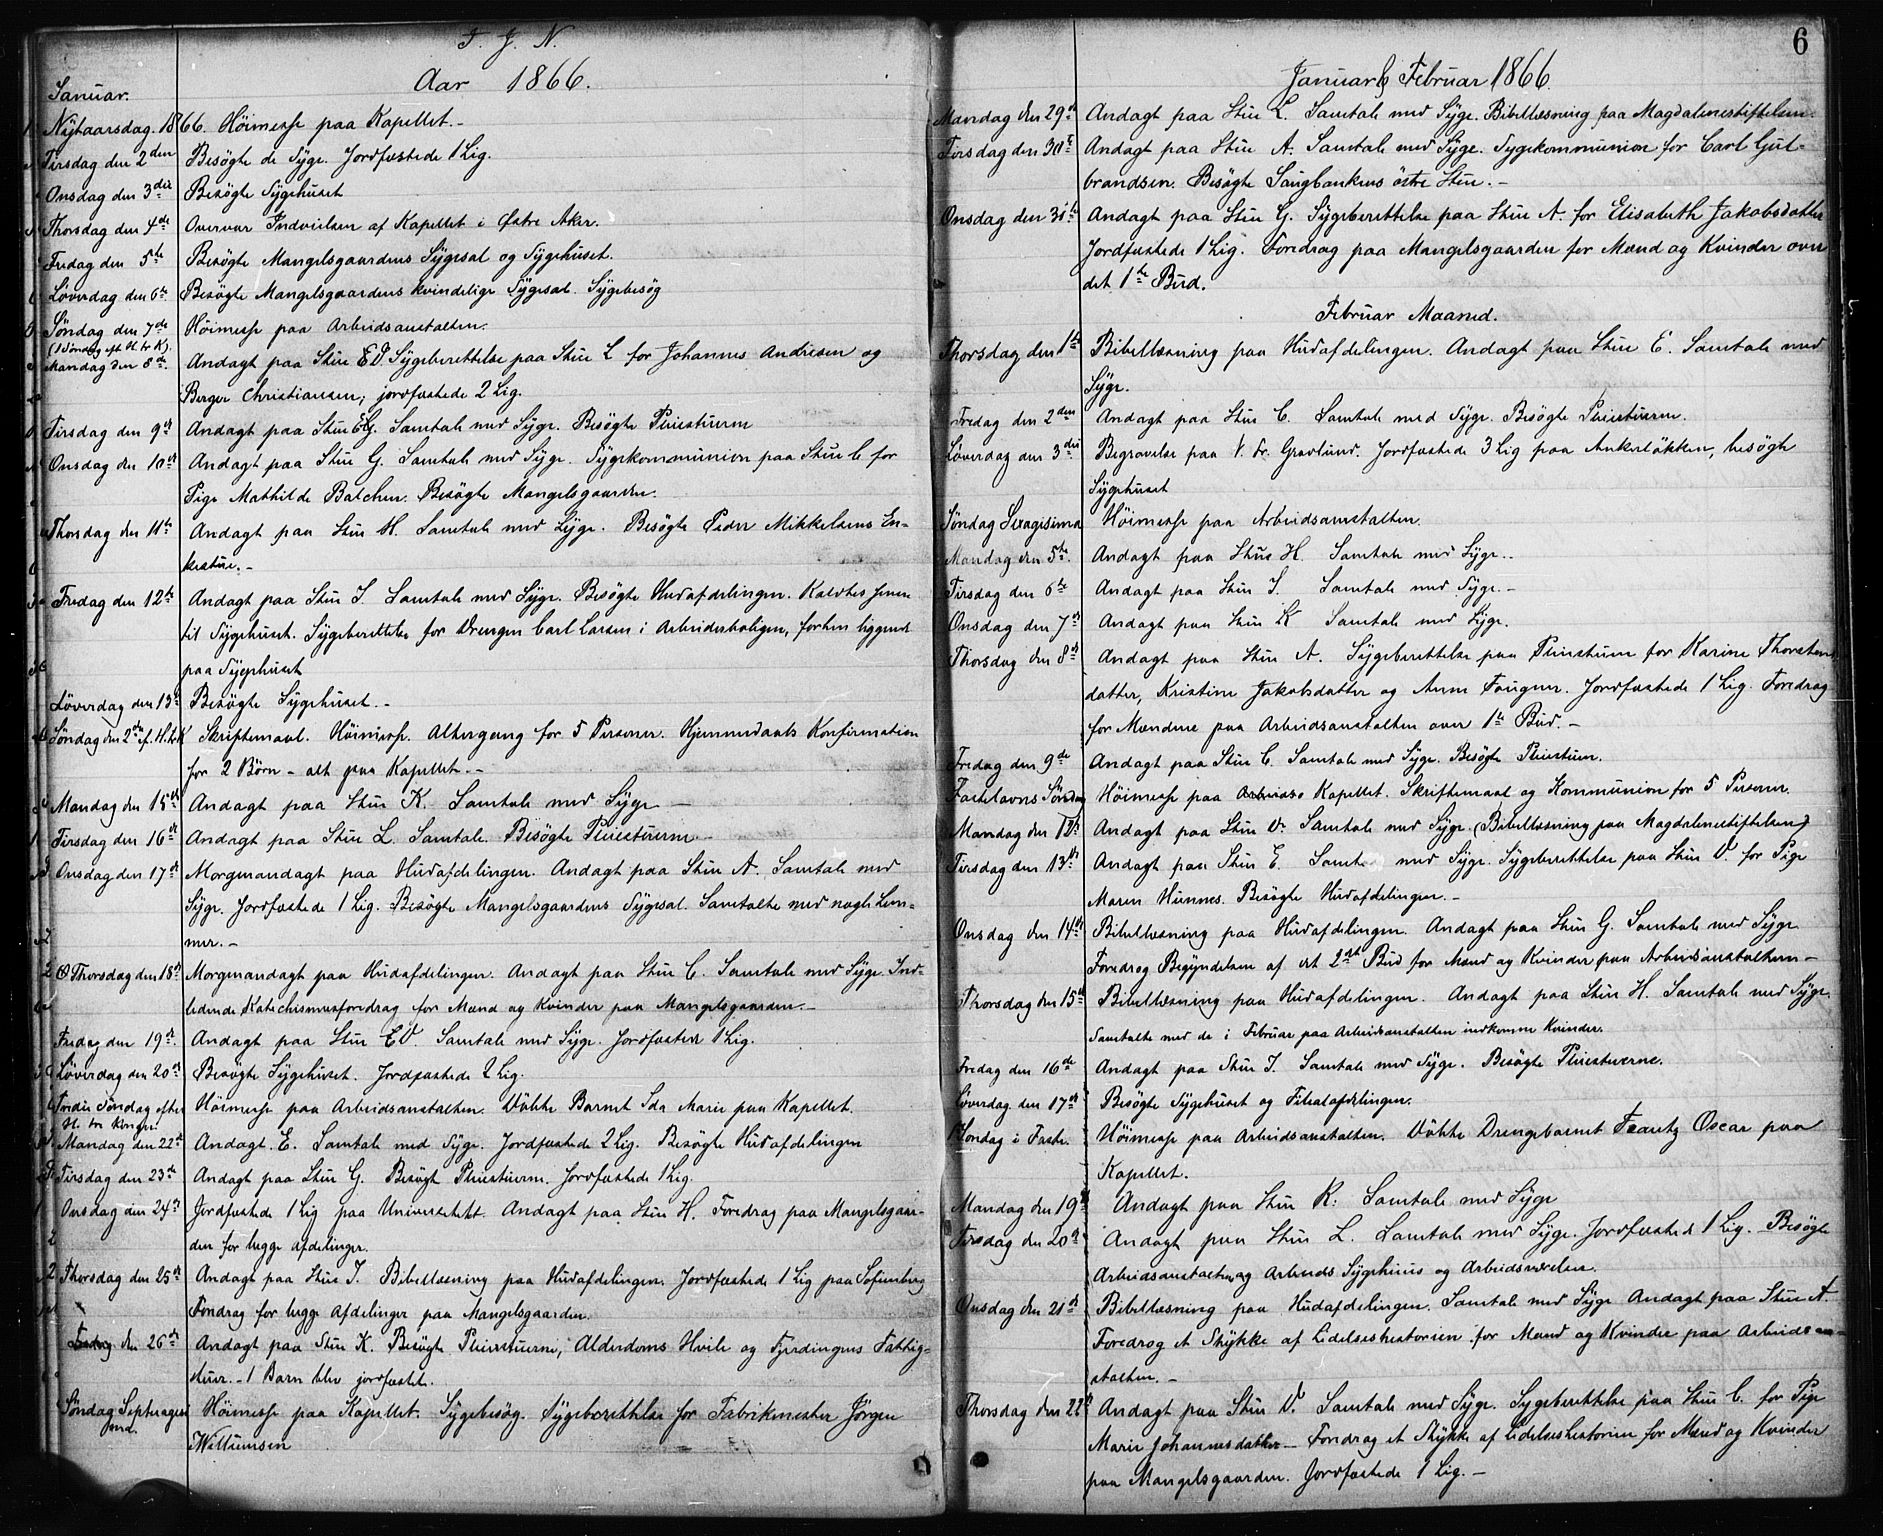 I. J. N.
Aar 1866.
Januar.
Nytaarsdag 1866. Höimesse paa Kapellet.-
Tirsdag den 2den Besögte de Syge. Jordfæstede 1 Lig.
Onsdag den 3die Besögte Sygehuset
Thorsdag den 4de Overvar Indvielsen af Kapellet i Østre Aker.
Fredag den 5te Besögte Mangelsgaardens Sygesal og Sygehuset.
Löverdag den 6te Besögte Mangelsgaardens kvindelige Sygesal. Sygebesög
Söndag den 7de Höimesse paa Arbeidsanstalten.
(1 Söndag eft H. tr K).
Mandag den 8de. Andagt paa Stue E D. Sygeberettelse paa Stue L for Johannes Andresen og
Berger Christiansen; jordfæstede 2 Lig.
Tirsdag den 9de Andagt paa Stue EG. Samtale med Syge. Besögte Pleiestuerne
Onsdag den 10de Andagt paa Stue G. Samtale med Syge. Sygekommunion paa Stue C for
Pige Mathilde Batchen. Besögte Mangelsgaarden.
Thorsdag den 11te Andagt paa Stue H. Samtale med Syge. Besögte Peder Mikkelsens En-
kestue.-
Fredag den 12te Andagt paa Stue I Samtale med Syge. Besögte Hudafdelingen. Kaldtes
til Sygehuset. Sygeberettelse for Drengen Carl Larsen i Arbeiderboligen, forhen liggende
paa Sygehuset
Löverdag den 13de Besögte Sygehuset.-
Söndag den 2den ef. H. tr K Skriftemaal. Höimesse. Altergang for 5 Personer. Hjemmedaabs Konfirmation
for 2 Börn - alt paa Kapellet.-
Mandag den 15de Andagt paa Stue K. Samtale med Syge -
Tirsdag den 16de Andagt paa Stue L. Samtale. Besögte Pleiestuerne -
Onsdag den 17de Morgenandagt paa Hudafdelingen. Andagt paa Stue A. Samtale med
Syge. Jordfæstede 1 Lig. Besögte Mangelsgaardens Sygesal. Samtalte med nogle Lem-
mer.-
Thorsdag den 18de Morgenandagt paa Hudafdelingen. Andagt paa Stue C. Samtale med Syge. Ind-
ledende Katechismusforedrag for Mænd og Kvinder paa Mangelsgaarden.-
Fredag den 19de. Andagt paa Stue E D. Samtale med Syge. Jordfæstede 1 Lig.
Löverdag den 20de Besögte Sygehuset. Jordfæstede 2 Lig.
Tredie Söndag efter Höimesse paa Arbeidsanstalten. Döbte Barnet Ida Marie paa Kapellet.
H. tre Konger
Mandag den 22de Andagt. E. Samtale med Syge. Jordfæstede 2 Lig. Besögte Hudafdelingen
Tirsdag den 23de Andagt paa Stue G. Besögt Pleiestuerne. Jordfæstede 1 Lig.
Onsdag den 24de Jordfæstede 1 Lig paa Universitetet. Andagt paa Stue H. Foredrag paa Mangelsgaar-
den for begge afdelinger.
Thorsdag den 25de Andagt paa Stue I. Bibellæsning paa Hudafdelingen. Jordfæstede 1 Lig paa Sofienberg
Foredrag for begge Afdelinger paa Mangelsgaarden.
Fredag den 26de Andagt paa Stue K. Besögte Pleiestuerne, Alderdoms Hvile og Fjerdingens Fattig-
stuer.- 1 Barn blev jordfæstet.
Söndag Septuagesi Höimesse paa Kapellet. Sygebesög. Sygeberettelse for Fabrikmester Jörgen
Willumsen
6
Januar & Februar 1866.
Mandag den 29de Andagt paa Stue L. Samtale med Syge. Bibellæsning paa Magdalenestiftelsen.
Tirsdag den 30te Andagt paa Stue A. Samtale med Syge. Sygekommunion for Carl Gul-
brandsen. Besögte Saugbankens östre Stue.-
Onsdag den 31te Andagt paa Stue G. Sygeberettelse paa Stue A. for Elisabeth Jakobsdatter
Jordfæstede 1 Lig. Foredrag paa Mangelsgaarden for Mænd og Kvinder over
det 1ste Bud.
Februar Maaned.
Thorsdag den 1te Bibellæsning paa Hudafdelingen. Andagt paa Stue E. Samtale med
Syge.
Fredag den 2den Andagt paa Stue C. Samtale med Syge. Besögte Pleiestuerne.
Löverdag den 3die Begravelse paa V. Fr. Gravlund. Jordfæstede 3 Lig paa Ankerløkken, besögte
Sygehuset
Söndag Sexagisima Höimesse paa Arbeidsanstalten.
Mandag den 5te. Andagt paa Stue H. Samtale med Syge.-
Tirsdag den 6te Andagt paa Stue I. Samtale med Syge.-
Onsdag den 7de Andagt paa Stue K Samtale med Syge.
Thorsdag den 8de Andagt paa Stue A. Sygeberettelse paa Pleiestuen for Karine Thorstens
datter, Kristine Jakobsdatter og Anne Fougner. Jordfæstede 1 Lig. Foredrag
for Mændene paa Arbeidsanstalten over 1te Bud.-
Fredag den 9de Andagt paa Stue C. Samtale med Syge. Besögte Pleiestuen.
Fastelavns Söndag Höimesse paa Kapellet. Skriftemaal og Kommunion for 5 Personer.
Mandag den 12te Andagt paa Stue D. Samtale med Syge (Bibellæsning paa Magdalenestiftelsen)
Tirsdag den 13de Andagt paa Stue E. Samtale med Syge. Sygeberettelse paa Stue D. for Pige
Maren Hunnes. Besögte Hudafdelingen.-
Onsdag den 14de Bibellæsning paa Hudafdelingen. Andagt paa Stue G. Samtale med Syge
Foredrog Begyndelsen af det 2det Bud for Mænd og Kvinder paa Arbeidsanstalten-
Thorsdag den 15de Bibellæsning paa Hudafdelingen. Andagt paa Stue H. Samtale med Syge.
Samtalte med de i Februar paa Arbeidsanstalten indkomne Kvinder.
Fredag den 16de Andagt paa Stue I. Samtale med Syge. Besögte Pleiestuerne.
Löverdag den 17de Besögte Sygehuset og Filialafdelingen.
1 Söndag i Faste. Höimesse paa Arbeidsanstalten. Döbte Drengebarnet Frantz Oscar paa
Kapellet.
Mandag den 19de Andagt paa Stue K. Samtale med Syge
Tirsdag den 20de Andagt paa Stue L. Samtale med Syge. Jordfæstede 1 Lig. Besögte
Arbeidsanstalten og Arbeids Sygehuus og Arbeidsværelser.
Onsdag den 21de Bibellæsning paa Hudafdelingen. Samtale med Syge Andagt paa Stue A.
Foredrog et Stykke af Lidelseshistorien for Mænd og Kvinder paa Arbeidsan-
stalten.-
Thorsdag den 22de Andagt paa Stue D. Samtale med Syge. Sygeberettelse paa Stue C. for Pige
Marie Johannesdatter - Foredrag et Stykke af Lidelseshistorien for Mænd og Kvinder
paa Mangelsgaarden. Jordfæstede 1 Lig.-